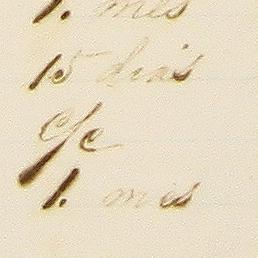 1. mes
15 dias
c/c
1. mes